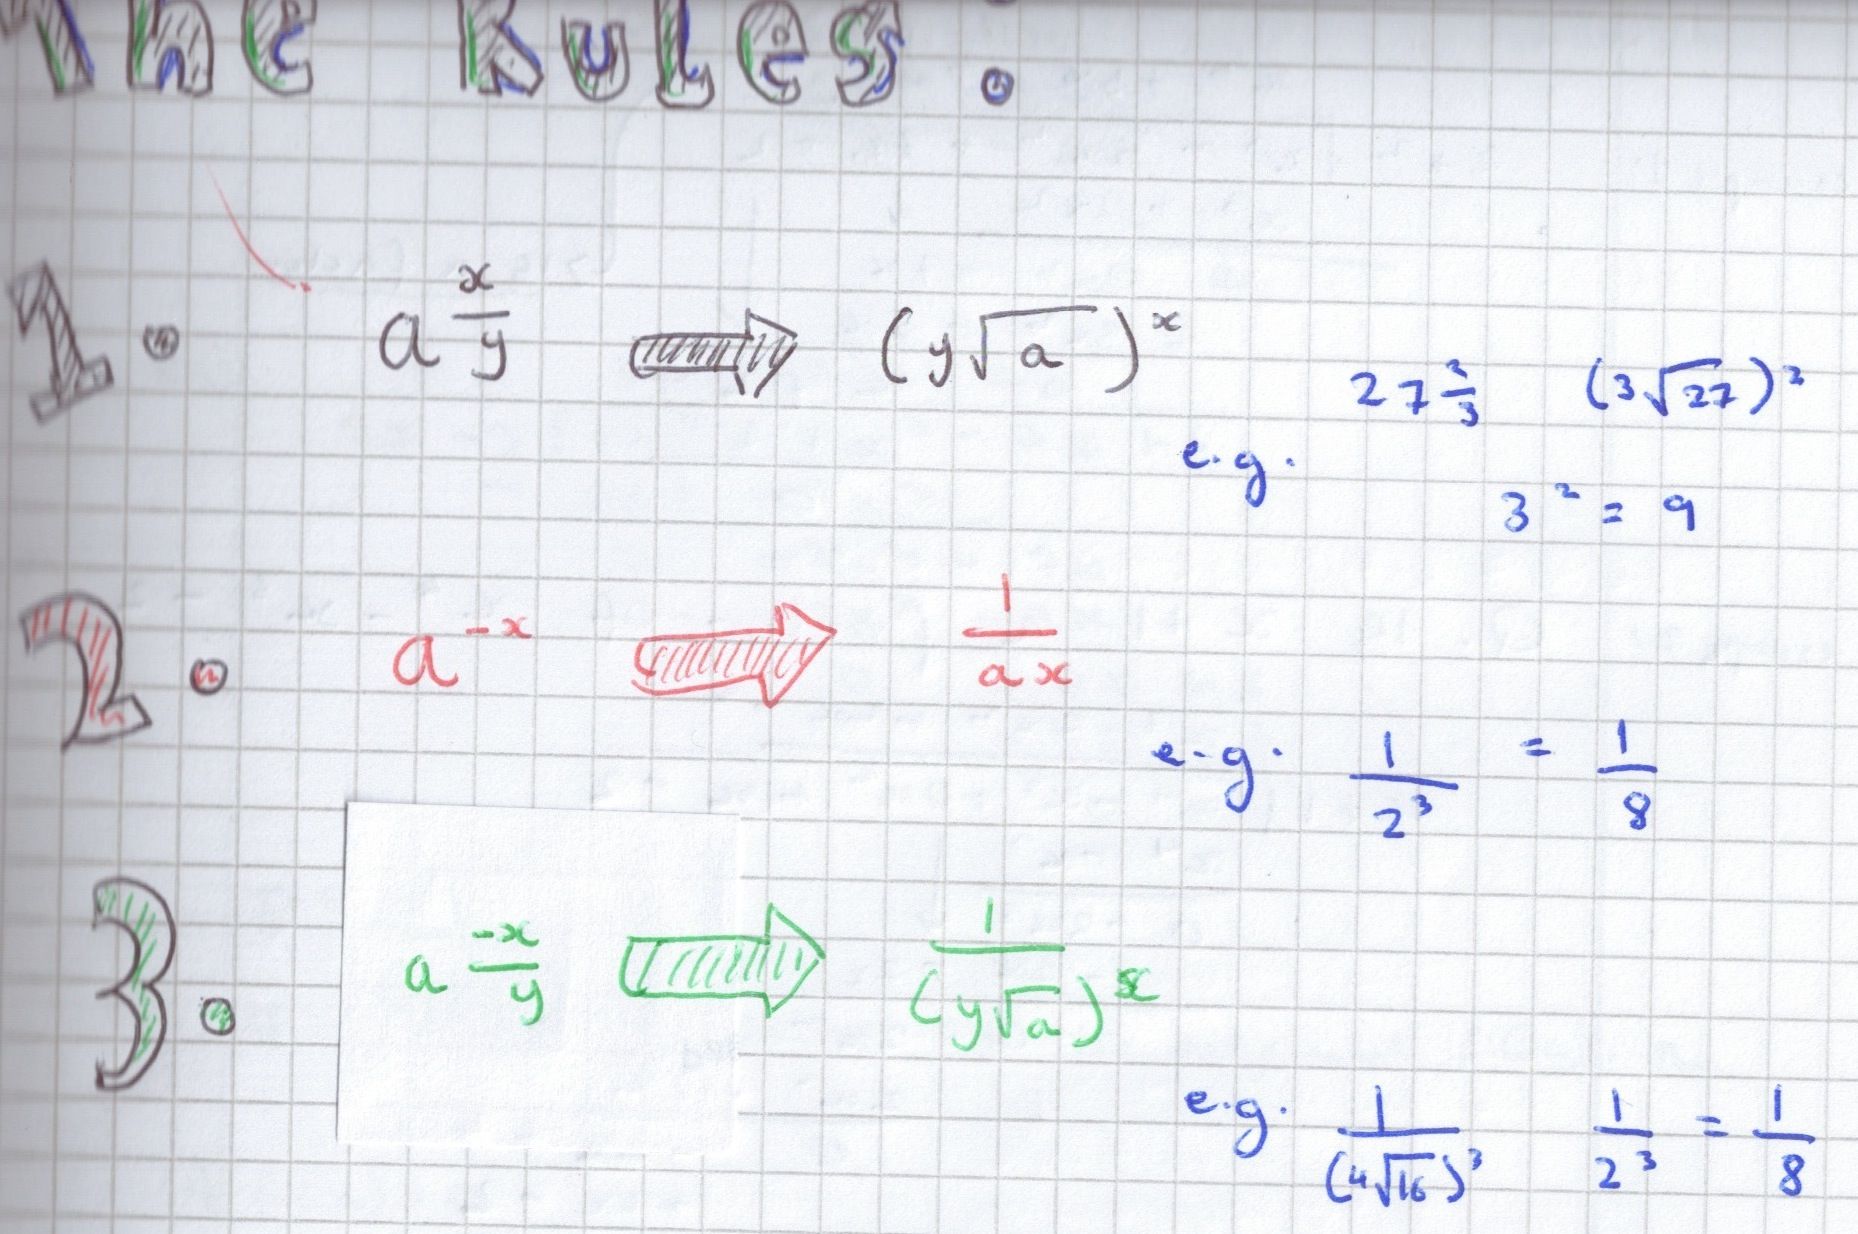 The Rules :
1. a^(x/y) ⇒ (y√a)^x
27^(2/3) (3√27)^2
e.g.
3^2 = 9
2. a^-x ⇒ 1/ax
e.g. 1/2^3 = 1/8
3. a^(-x/y) ⇒ 1/(y√a)^x
e.g. 1/(4√16)^3 1/2^3 = 1/8